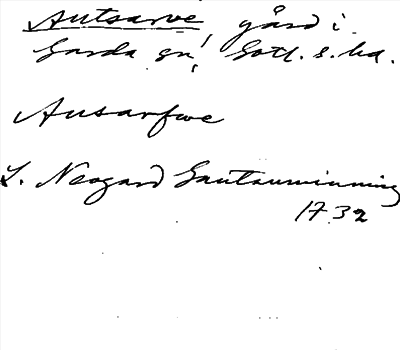 Autsarve, gård i
Garda sn, Gotl. s. hd.
Ausarfwe
L. Neogard Gautauminning
1732